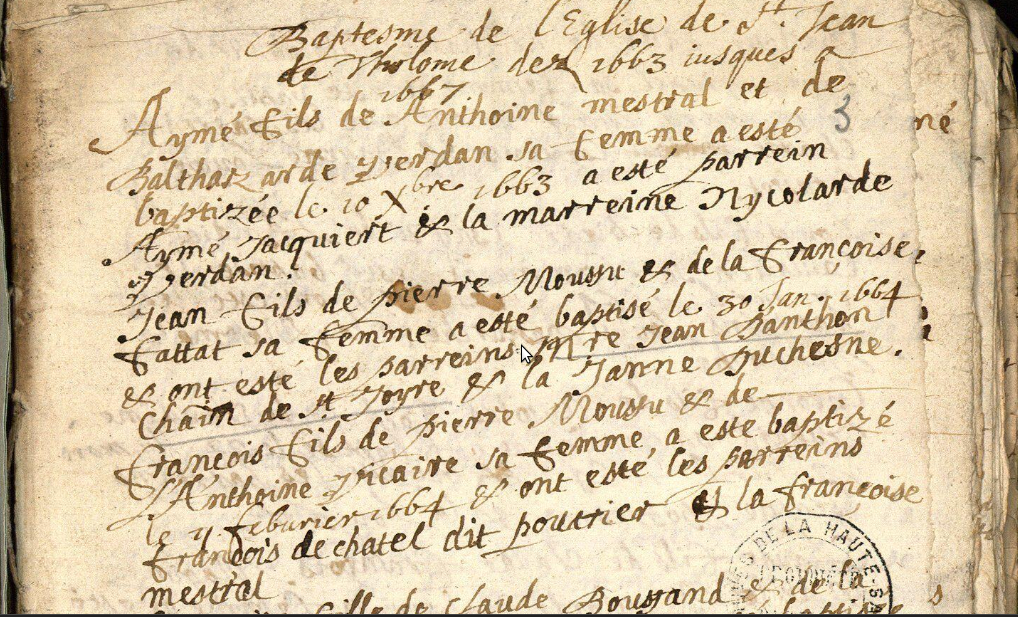 Baptesme de l'Eglise de St. Jean
de Tholome dez 1663 iusques a
1667
3
Aymé fils de Anthoine mestral et de
Baltharzarde yerdan sa femme a esté
baptizée le 10 Xbre 1663 a esté parrein
Aymé Jacquiert & la marreine Nycolarde
yerdan.
Jean fils de pierre Moussu & de la françoise
fattat sa femme a esté baptisé le 30 Jan. 1664
& ont esté les parreins Mre Jean Banthon
Chain de St Joyre & la Janne Duchesne.
francois fils de pierre Moussu & de
l'Anthoine yicaire sa femme a este baptizé
le febvrier 1664 & ont esté les parreins
francois de chatel dit poutrier & la francoise
mestral
fille de Claude Boussand & de la
né
DE LA HAUTE-SA